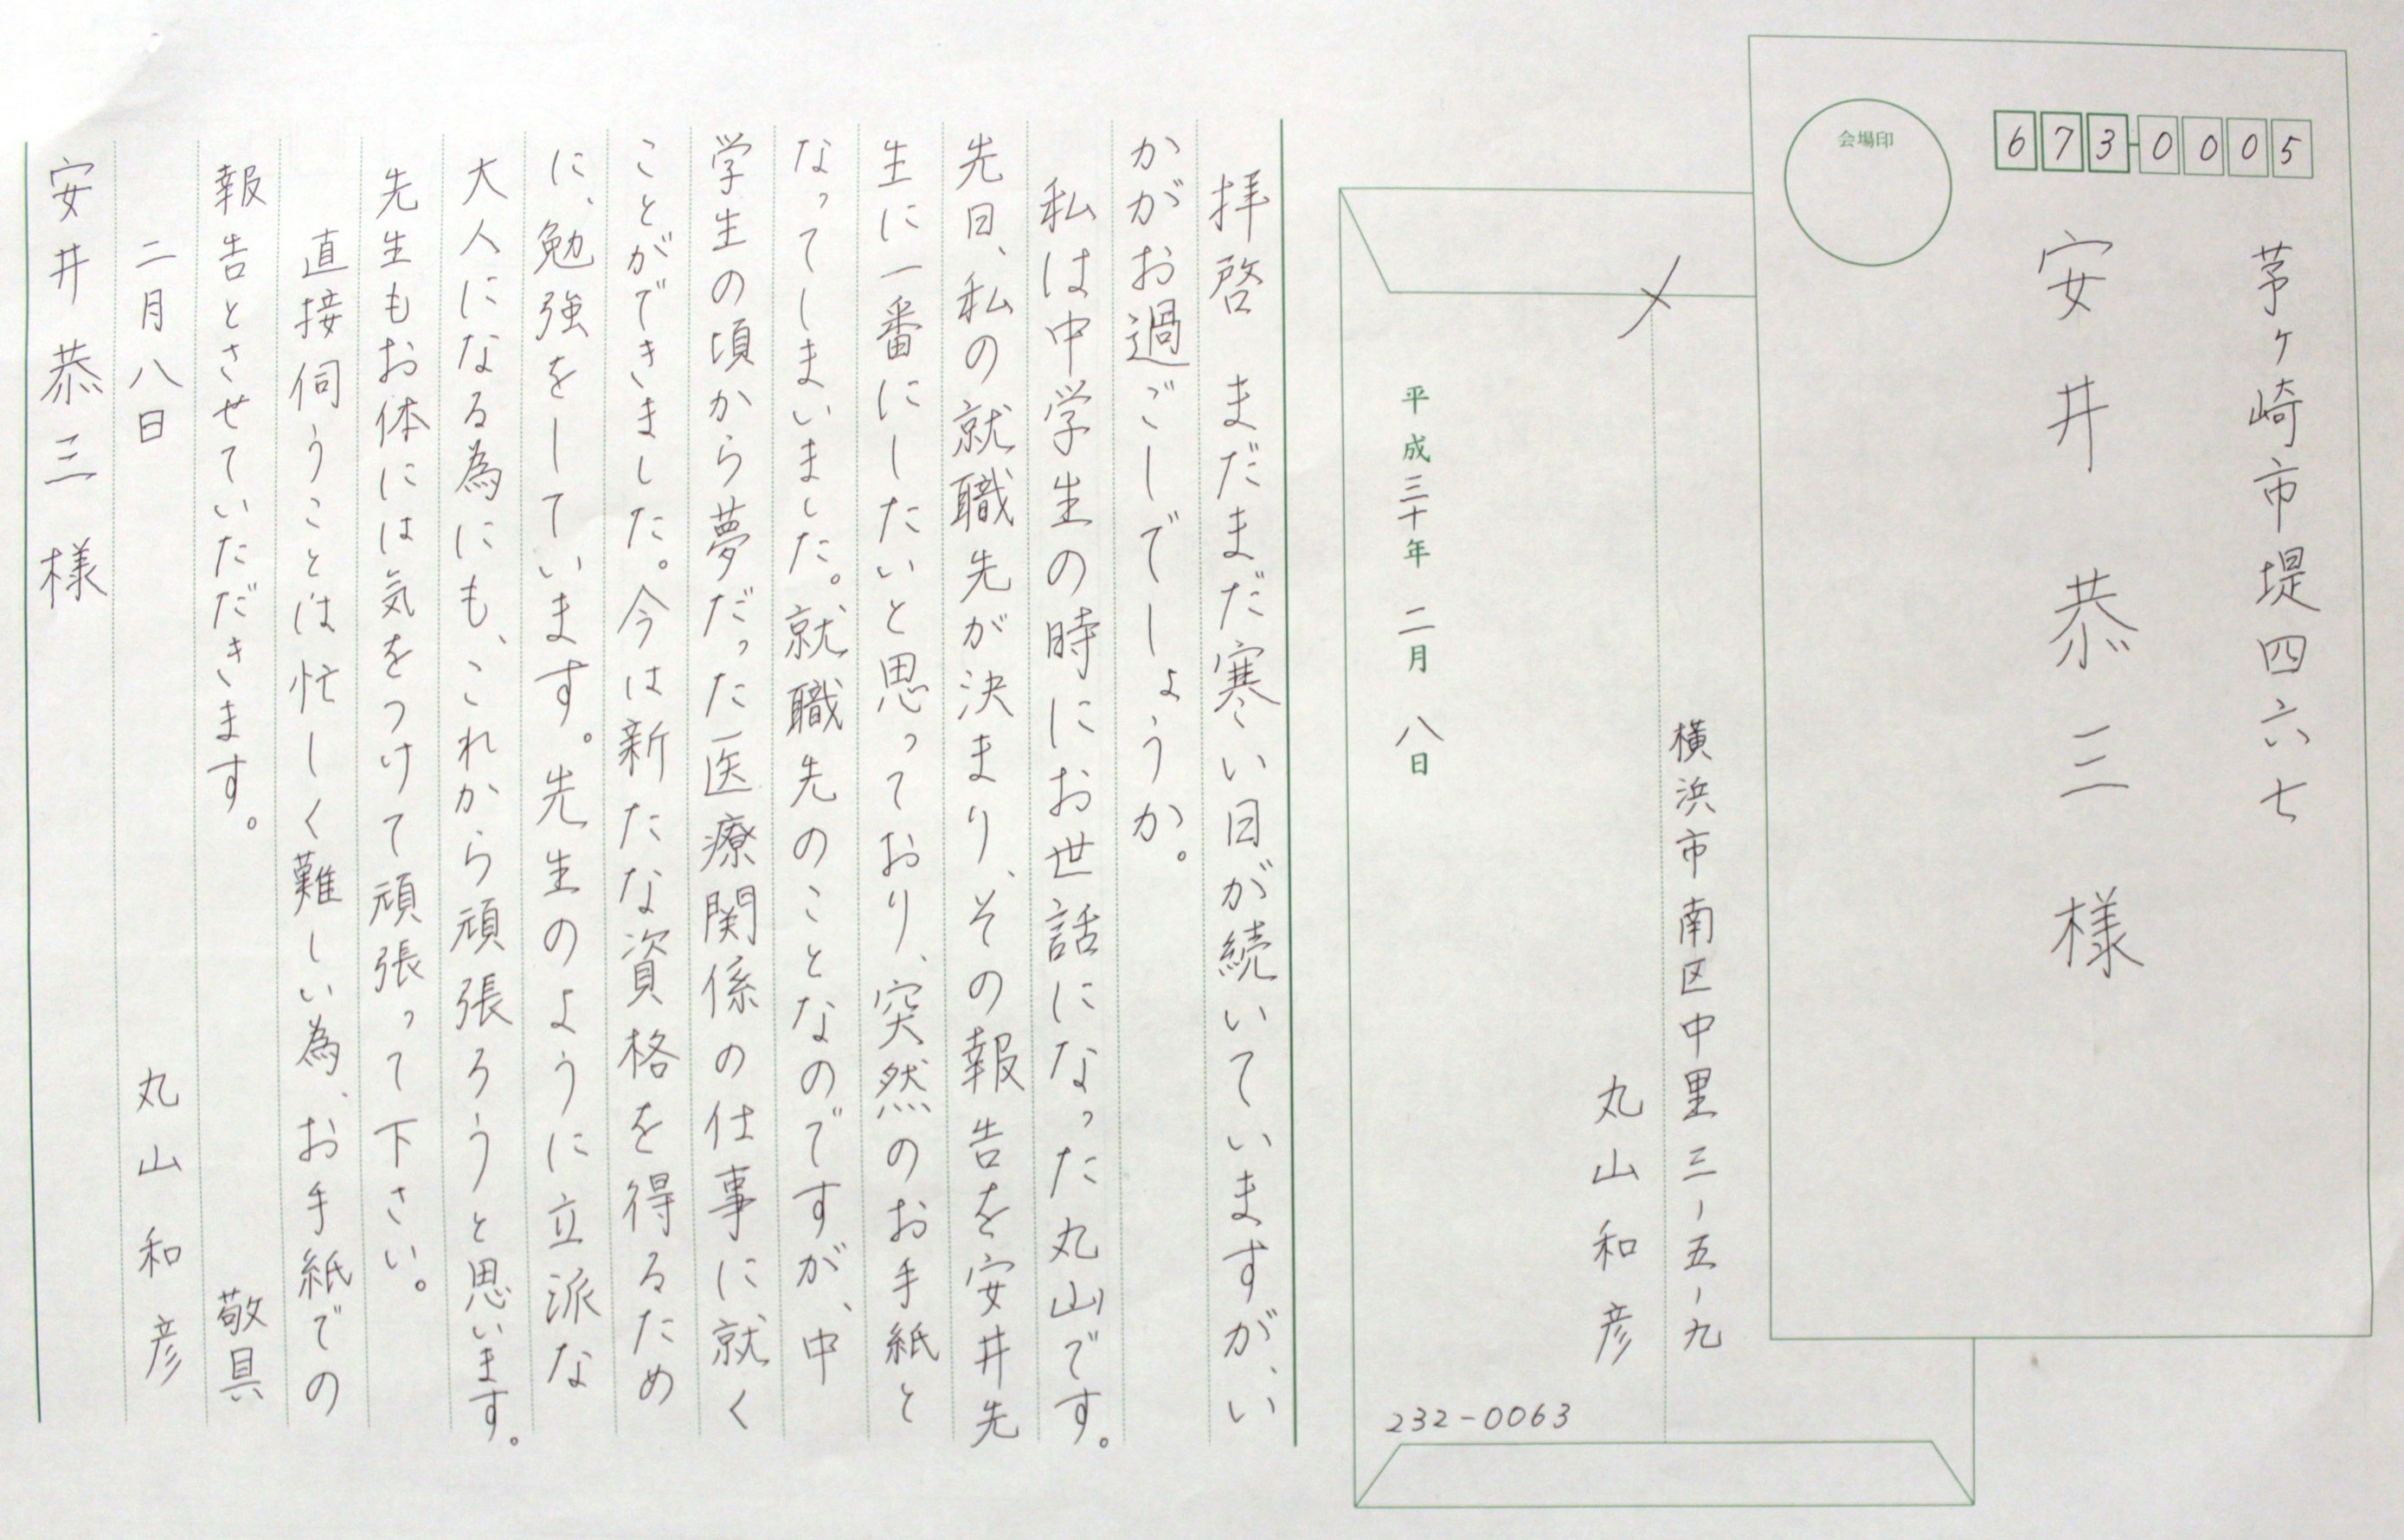 673-0005
会場印
茅ヶ崎市堤四六七
安井恭三様
〆
横浜市南区中里三-五-九
丸山和彦
平成三十年 二月 八日
232-0063
拝啓 まだまだ寒い日が続いていますが、い
かがお過ごしでしょうか。
私は中学生の時にお世話になった丸山です。
先日、私の就職先が決まり、その報告を安井先
生に一番にしたいと思っており、突然のお手紙と
なってしまいました。就職先のことなのですが、中
学生の頃から夢だった医療関係の仕事に就く
ことができました。今は新たな資格を得るため
に、勉強をしています。先生のように立派な
大人になる為にも、これから頑張ろうと思います。
先生もお体には気をつけて頑張って下さい。
直接伺うことは忙しく難しい為、お手紙での
報告とさせていただきます。 敬具
二月八日 丸山和彦
安井恭三様